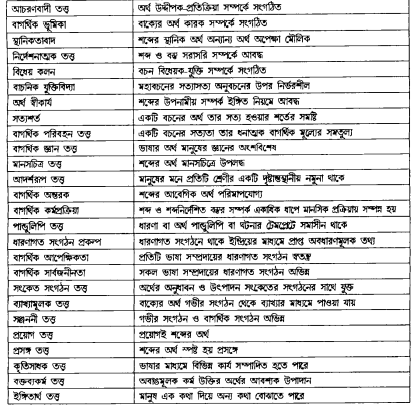 আচরণবাদী তত্ত্ব অর্থ উদ্দীপক-প্রতিক্রিয়া সম্পর্কে সংগঠিত
বাগর্থিক ভূমিকা বাক্যের অর্থ কারক সম্পর্কে সংগঠিত
স্থানিকতাবাদ শব্দের স্থানিক অর্থ অন্যান্য অর্থ অপেক্ষা মৌলিক
নির্দেশনাত্মক তত্ত্ব শব্দ ও বস্তু সরাসরি সম্পর্কে আবদ্ধ
বিধেয় কলন বচন বিধেয়ক-যুক্তি সম্পর্কে সংগঠিত
বাচনিক যুক্তিবিদ্যা মহাবচনের সত্যাসত্য অনুবচনের উপর নির্ভরশীল
অর্থ স্বীকার্য শব্দের উপনামীয় সম্পর্ক ইঙ্গিত নিয়মে আবদ্ধ
সত্যশর্ত একটি বচনের অর্থ তার সত্য হওয়ার শর্তের সমষ্টি
বাগর্থিক পরিবহন তত্ত্ব একটি বচনের সত্যতা তার ধনাত্মক বাগর্থিক মূল্যের সমতুল্য
বাগর্থিক জ্ঞান তত্ত্ব ভাষার অর্থ মানুষের জ্ঞানের অংশবিশেষ
মানসচিত্র তত্ত্ব শব্দের অর্থ মানসচিত্রে উপলব্ধ
আদর্শরূপ তত্ত্ব মানুষের মনে প্রতিটি শ্রেণীর একটি দৃষ্টান্তস্থানীয় নমুনা থাকে
বাগর্থিক অন্তরক শব্দের আবেগিক অর্থ পরিমাপযোগ্য
বাগর্থিক কর্মপ্রক্রিয়া শব্দ ও শব্দনির্দেশিত বস্তুর সম্পর্ক একাধিক ধাপে মানসিক প্রক্রিয়ায় সম্পন্ন হয়
পান্ডুলিপি তত্ত্ব ধারণা বা অর্থ পান্ডুলিপি বা ঘটনার টেমপ্লেটে সমাসীন থাকে
ধারণাগত সংগঠন প্রকল্প ধারণাগত সংগঠনে থাকে ইন্দ্রিয়ের মাধ্যমে প্রাপ্ত অবধারণমূলক তথ্য
বাগর্থিক আপেক্ষিকতা প্রতিটি ভাষা সম্প্রদায়ের ধারণাগত সংগঠন স্বতন্ত্র
বাগর্থিক সার্বজনীনতা সকল ভাষা সম্প্রদায়ের ধারণাগত সংগঠন অভিন্ন
সংকেত সংগঠন তত্ত্ব অর্থের অনুধাবন ও উৎপাদন সংকেতের সংগঠনের সাথে যুক্ত
ব্যাখ্যামূলক তত্ত্ব বাক্যের অর্থ গভীর সংগঠন থেকে ব্যাখ্যার মাধ্যমে পাওয়া যায়
সঞ্জননী তত্ত্ব গভীর সংগঠন ও বাগর্থিক সংগঠন অভিন্ন
প্রয়োগ তত্ত্ব প্রয়োগই শব্দের অর্থ
প্রসঙ্গ তত্ত্ব শব্দের অর্থ স্পষ্ট হয় প্রসঙ্গে
কৃতিসাধক তত্ত্ব ভাষার মাধ্যমে বিভিন্ন কার্য সম্পাদিত হতে পারে
বক্তব্যকর্ম তত্ত্ব অবাঙমূলক কর্ম উক্তির অর্থের আবশ্যক উপাদান
ইঙ্গিতার্থ তত্ত্ব মানুষ এক কথা দিয়ে অন্য কথা বোঝাতে পারে